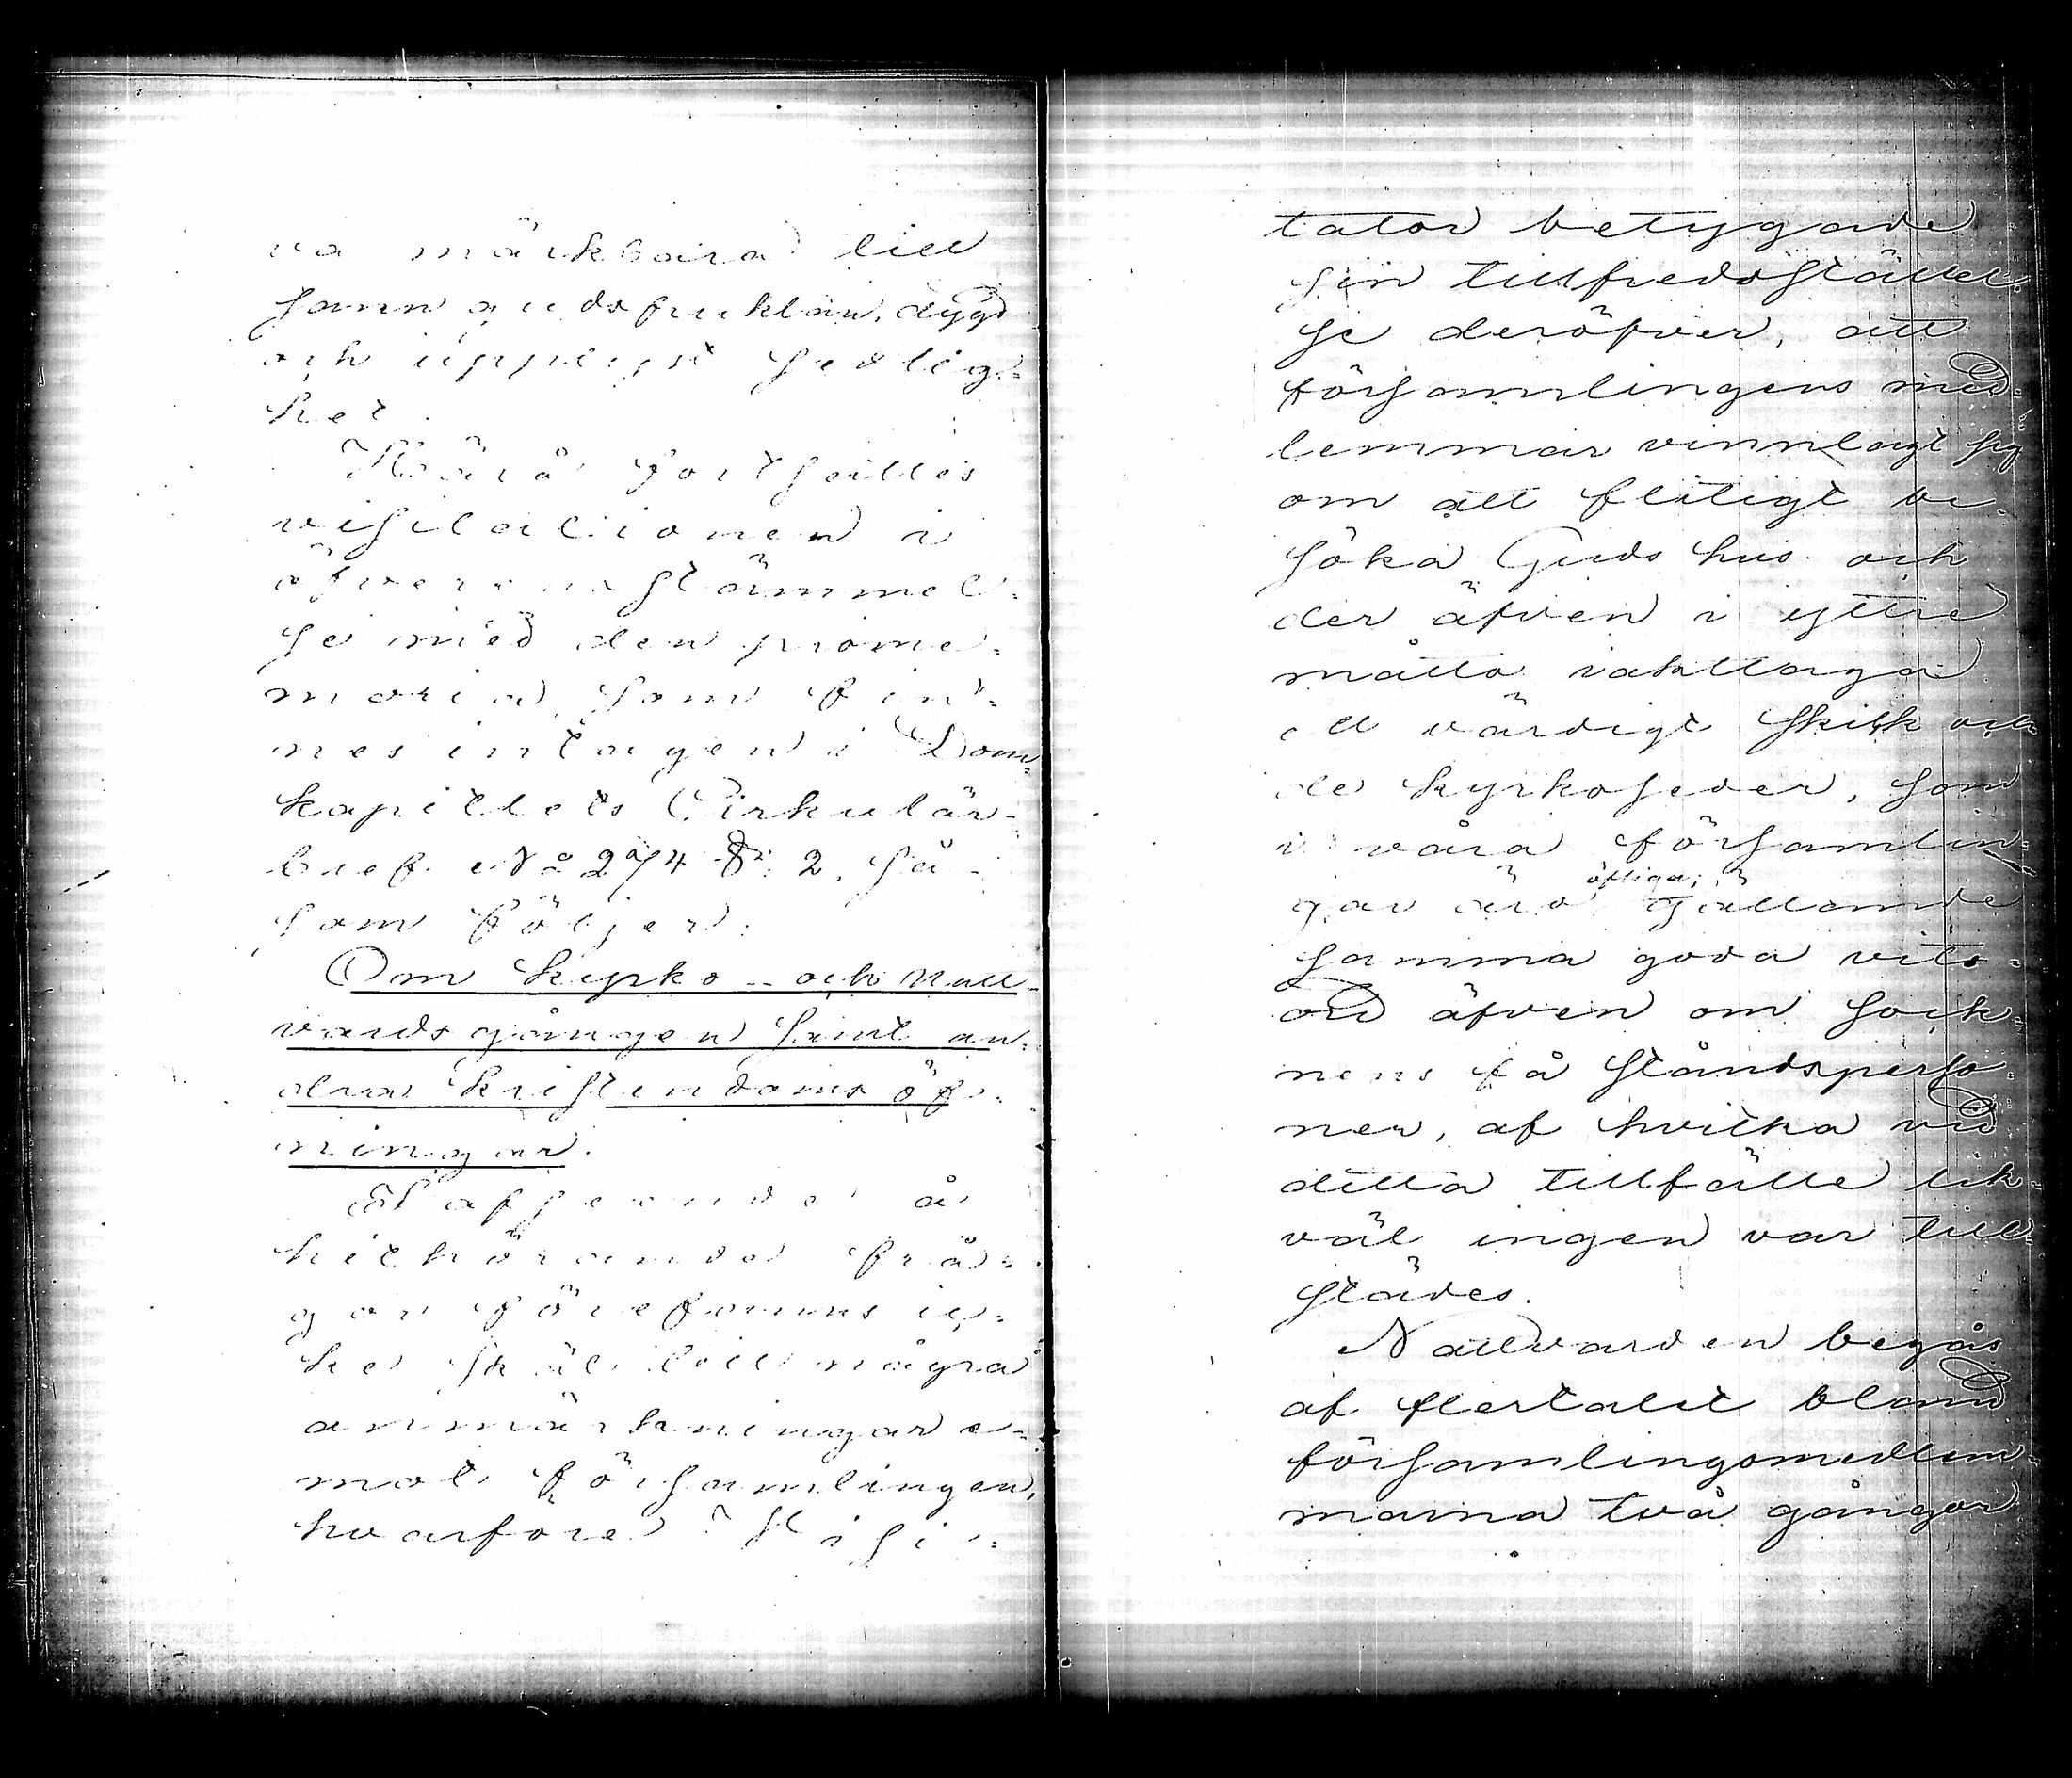 ra märkbara till
sann gudsfruktan, dygd
och upplyst sedlig-
het.
Härå fortsattes
visitationen i
öfverensstämmel-
se med den prome-
moria, som fin-
nes intagen i Dom-
kapitlets Cirkulär-
bref No 274 §: 2, så-
som följer:
Om kyrko- och natt-
vardsgången samt an-
dra kristendomsöf-
ningar.
I afseende å
hithörande frå-
gor förefanns ic-
ke skäl till några
anmärkningar e-
mot församlingen,
hvarföre Visi-
tator betygade
sin tillfredsställel-
se deröfver, att
församlingens med-
lemmar vinnlagt sig
om att flitigt be-
söka Guds hus och
der äfven i yttre
måtto iakttaga
ett värdigt skick och
de kyrkoseder, som
i våra församlin-
gar äro öfliga; gällande
samma goda vits-
ord äfven om sock-
nens få ståndsperso-
ner, af hvilka vid
detta tillfälle lik-
väl ingen var till-
städes.
Nattvarden begås
af flertalet bland
församlingsmedlem-
marna två gånger